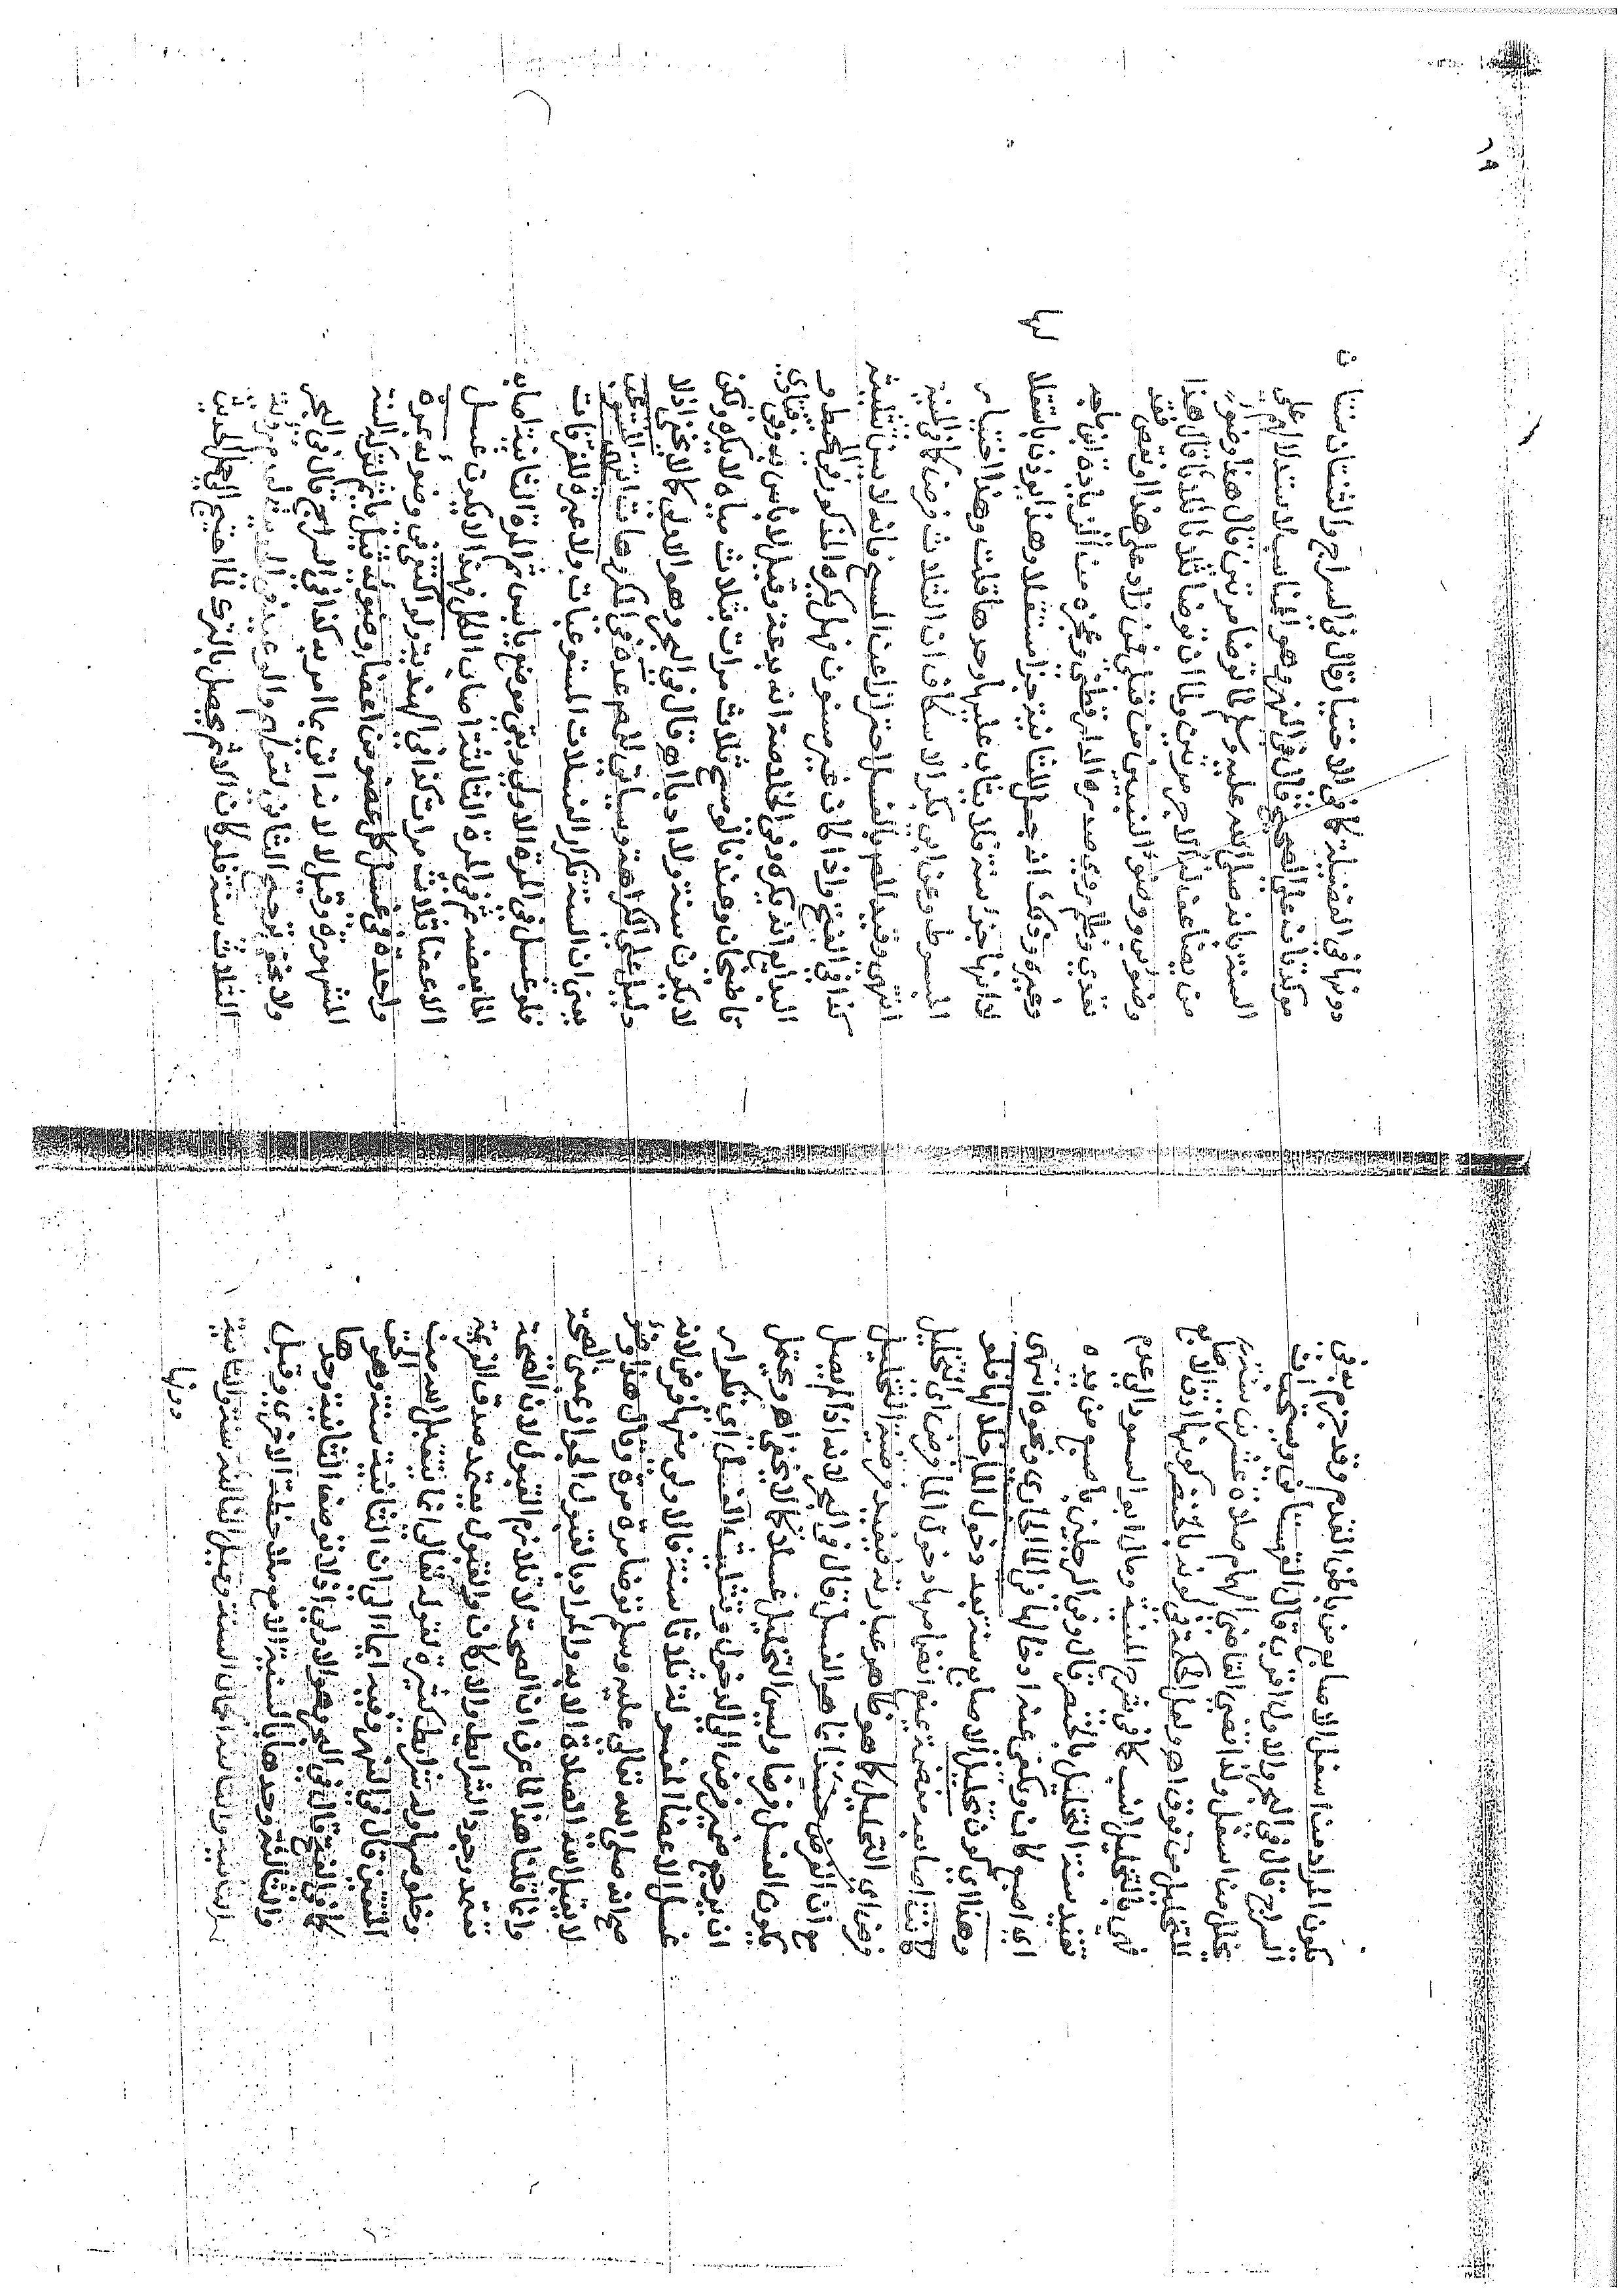 تكون المراد من اسفل الاصابع من باطن القدم وقد جزم به في
السراج قال في البحر والاول اقرب قال القهستاني ويستحب ان
يخلل من اسفل ولذا قضى القاضي الهمام صلاة عشرين سنة بترك
التخليل من فوق اهـ ولعل الحكمة في كونه بالخنصر كونها ادق الاصابع
فهي بالتخليل انسب كما في شرح المنية ومال ابو السعود الى عدم
تقييد سنة التخليل بالخنصر قال وفي الرجلين باصبع من يده
اي اصبع كان ويكفي عنه ادخالها في الماء الجاري ونحوه انتهى
وهذا اي كون تخليل الاصابع سنة بعد دخول الماء خلالها فلو
كانت اصابعه منضمة دخول الماء فرض اي التخليل
فرض اي التخليل كما هو ظاهر عبارته فيفيد فرضية التخليل
مع ان الفرض حينئذ انما هو الغسل قال في البحر لانه اذا لم يصل
يكون الغسل فرضا وليس التخليل غسلا كما لا يخفى اهـ ويحتمل
ان يرجع ضمير فرض الى الدخول وتثليث الغسل اي تكرار
غسل الاعضاء المغسولة ثلاثا سنة فالاولى منها فرض لانه
صح انه صلى الله تعالى عليه وسلم توضا مرة مرة وقال هذا وضوء
لا يقبل الله الصلاة الا به والمراد بالقبول الجواز بمعنى الصحة
وانما قلنا هذا لما عرف ان الصحة لا تلازم القبول لان الصحة
تعتمد وجود الشرايط والاركان والقبول يعتمد صدق العزيمة
وخلوصها وله شرايط كثيرة لقوله تعالى انما يتقبل الله من
المتقين قال في النهر وفيه ايماء الى ان الثانية سنة وهو الحق
كما في الفتح قال في البحر وهو الاولى اذ لا توصف الثانية وحدها
والثالثة وحدها بالسنية الا مع ملاحظة الاخرى وقيل
السنة وقيل الثالثة سنة والثانية
دونها
دونها في الفضيلة كما في الاختيار وقال في السراج والثنتان سنتان
مؤكدتان على الصحيح قال في النهر وهو المناسب لاستدلالهم على
السنة بانه صلى الله عليه وسلم لما توضا مرتين قال هذا وضوء
من يضاعف له الاجر مرتين ولما ان توضا ثلاثا ثلاثا قال هذا
وضوئي ووضوء النبيين من قبلي فمن زاد على هذا او نقص فقد
تعدى وظلم روى صدره الدارقطني وعجزه من الزيادة ابن ماجه
وغيره وذلك انه جعل للثانية جزاء مستقلا وهذا يؤذن باستقلالها
لا انها جزء سنة فلا يثاب عليها وحدها قلت وهذا اختيار
المبسوط وعن ابي بكر الاسكاف ان الثلاث فرض كما في المنية
انتهى وقيد المص بالغسل احترازا عن المسح فانه لا يسن تثليثه
كذا في الفتح واذا كان غير مسنون فهل يكره المذكور في المحيط و
البدايع انه يكره وفي الخلاصة انه بدعة وقيل لا باس به وفي فتاوى
قاضيخان وعندنا لو مسح ثلاث مرات بثلاث مياه لا يكره ولكن
لا يكون سنة ولا ادبا اهـ قال في البحر وهو الاولى كما لا يخفى اذ لا
دليل على الكراهة وسياتي للمص عده في المكروهات انتهى
يعني ان السنة تكرار الغسلات المستوعبات ولا عبرة للغرفات
فلو غسل في المرة الاولى وبقي موضع يابس ثم المرة الثانية اصاب
الماء بعضه ثم في المرة الثالثة اصاب الكل فهذا لا يكون غسل
الاعضاء ثلاث مرات كذا في الهندية ولو اكتفى في وضوئه بمرة
واحدة في غسل كل عضو من اعضاء وضوئه قيل ياثم لتركه السنة
المشهورة وقيل لا لانه اتى بما امر به كذا في السراج قال في البحر
ولا يخفى ترجيح الثاني لقولهم والوعيد في الحديث لعدم رؤيته
الثلاث سنة فلو كان الاثم يحصل بالترك لما احتيج الى حمل الحديث